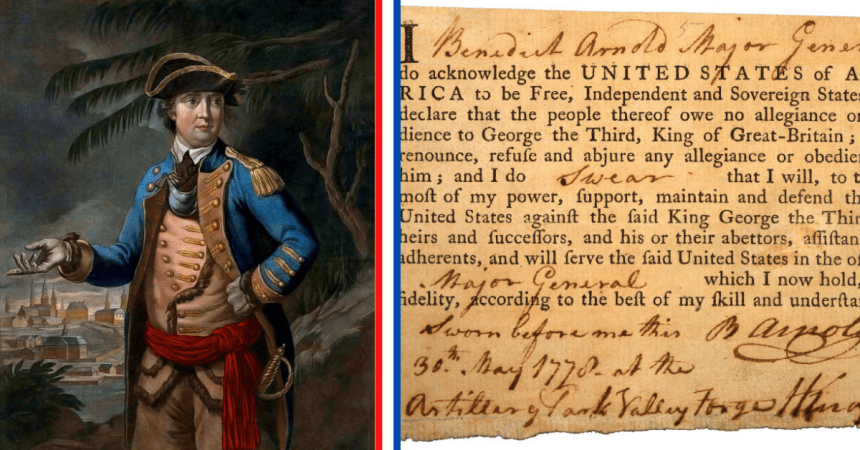 I Benedict Arnold Major Gener
do acknowledge the UNITED STATES of A
RICA to be Free, Independent and Sovereign States
declare that the people thereof owe no allegiance or
dience to George the Third, King of Great-Britain;
renounce, refuſe and abjure any allegiance or obedien
him; and I do swear that I will, to t
moſt of my power, ſupport, maintain and defend th
United States againſt the ſaid King George the Thir
heirs and ſucceſſors, and his or their abettors, aſſiſtan
adherents, and will ſerve the ſaid United States in the of
Major General which I now hold,
fidelity, according to the beſt of my ſkill and underſta
Sworn before me this B Arnold
30th May 1778 - at the
Artillery Park Valley Forge HKno